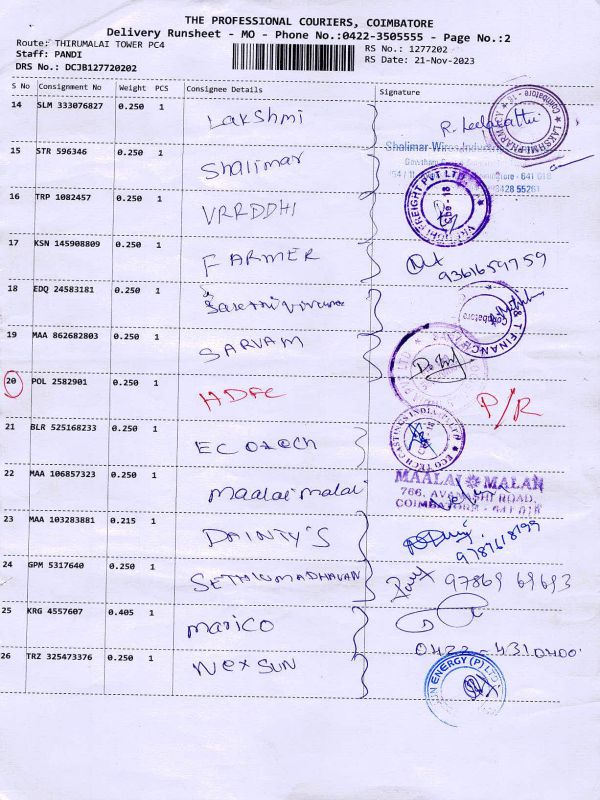 THE PROFESSIONAL COURIERS, COIMBATORE
Delivery Runsheet - MO - Phone No.:0422-3505555 - Page No.:2
Route: THIRUMALAI TOWER PC4 RS No.: 1277202
Staff: PANDI RS Date: 21-Nov-2023
DRS No.: DCJB127720202
S No Consignment No Weight PCS Consignee Details Signature
14 SLM 333076827 0.250 1 Lakshmi
LAKSHMI PHARMACY Coimbatore - 18
15 STR 596346 0.250 1 Shalimar
Shalimar Wires Industries
- 641 018
16 TRP 1082457 0.250 1 VRRDDHI
FREIGHT PVT LTD
17 KSN 145908809 0.250 1 FARMER 9361659759
18 EDQ 24583181 0.250 1
T FINANCE Coimbatore
19 MAA 862682803 0.250 1 SARVAM
20 POL 2582901 0.250 1 HDFC P/R
21 BLR 525168233 0.250 1 ECOtech
ECO TECH CASTINGS INDIA (P) LTD
22 MAA 106857323 0.250 1 Maalai malai
MAALAI MALAR
766, ROAD,
COIMBATORE - 641 018
23 MAA 103283881 0.215 1 DAINTY'S
24 GPM 5317640 0.250 1 SETHUMADHAVAN 97869 69693
25 KRG 4557607 0.405 1 Marico
0422-4310400.
26 TRZ 325473376 0.250 1 NexSUN
ENERGY (P) LTD